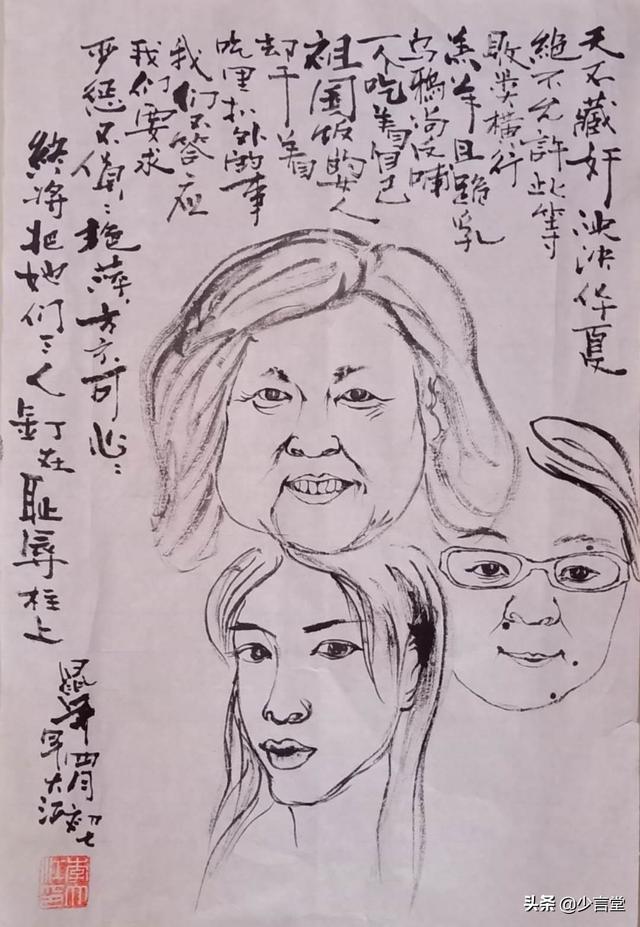 天不藏奸 泱泱华夏
绝不允許此等
败类横行
羔羊且跪乳
乌鸦尚反哺
一个吃着自己
祖国饭的女人
却干着
吃里扒外的事
我们不答应
我们要求
严惩不貸艳萍方方可心
终将把她们三人钉在耻辱柱上
鼠年
头条 @少言堂